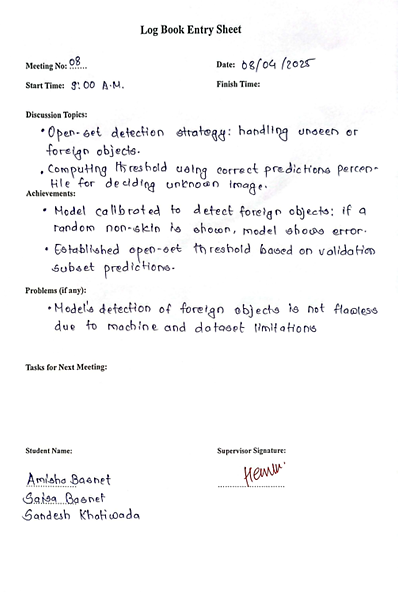 Log Book Entry Sheet
Meeting No: 08 Date: 08/04/2025
Start Time: 9:00 A.M. Finish Time:
Discussion Topics:
• Open-set detection strategy: handling unseen or
foreign objects.
• Computing threshold using correct predictions percen-
tile for deciding unknown image.
Achievements:
• Model calibrated to detect foreign objects; if a
random non-skin is shown, model shows error.
• Established open-set threshold based on validation
subset predictions.
Problems (if any):
• Model's detection of foreign objects is not flawless
due to machine and dataset limitations
Tasks for Next Meeting:
Student Name: Supervisor Signature:
Amisha Basnet
Basnet
Sandesh Khatiwada